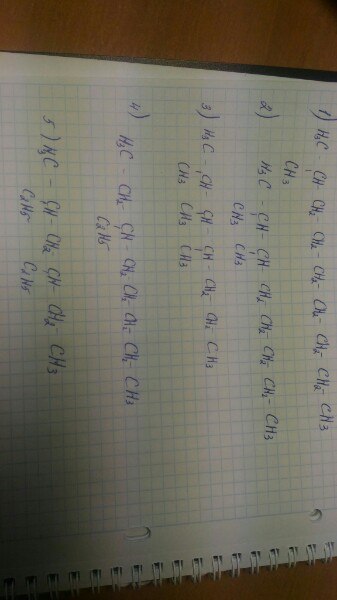 1) H3C - CH - CH2 - CH2 - CH2 - CH2 - CH2 - CH2 - CH3
CH3
2) H3C - CH - CH - CH2 - CH2 - CH2 - CH2 - CH3
CH3 CH3
3) H3C - CH - CH - CH - CH2 - CH2 - CH3
CH3 CH3 CH3
4) H3C - CH2 - CH - CH2 - CH2 - CH2 - CH2 - CH3
C2H5
5) H3C - CH - CH2 - CH - CH2 - CH3
C2H5 C2H5